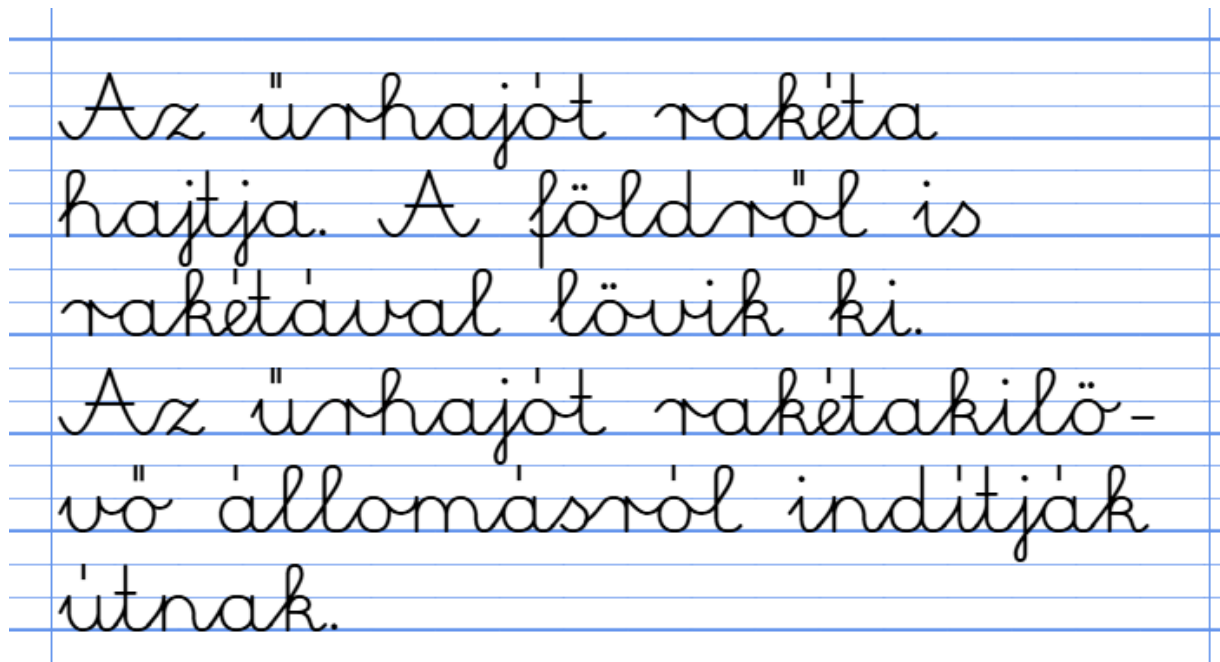 Az űrhajót rakéta
hajtja. A földről is
rakétával lövik ki.
Az űrhajót rakétakilö-
vő állomásról indítják
útnak.